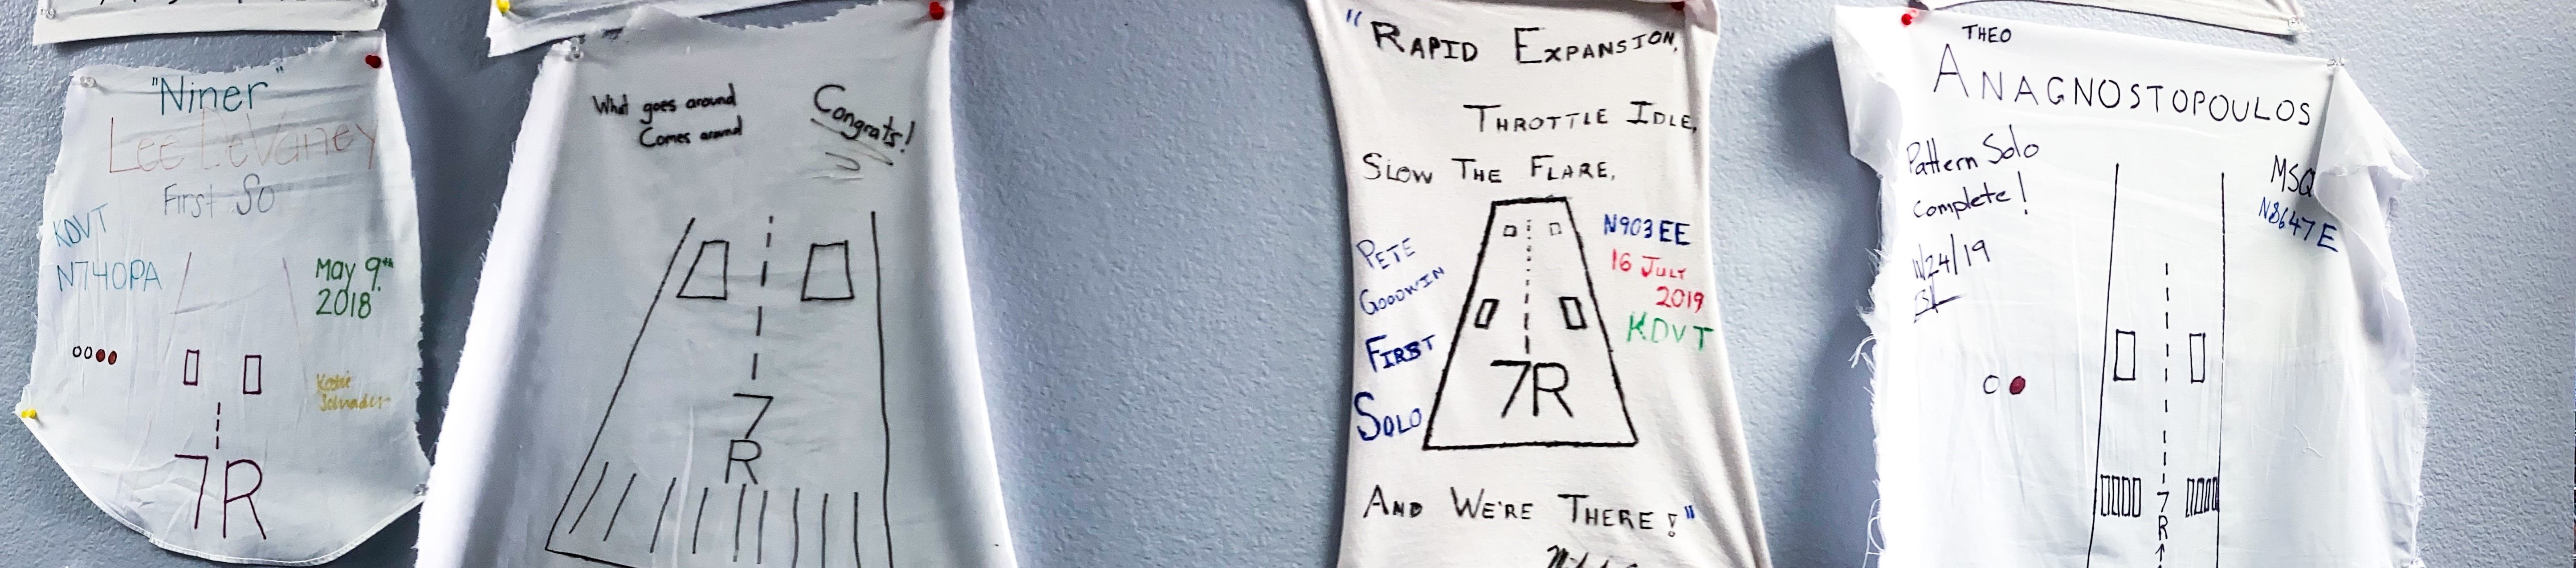 "Niner"
Lee DeVaney
First So
KDVT
N740PA
May 9th
2018
7R
What goes around
Comes around
Congrats!
7
R
"RAPID EXPANSION,
THROTTLE IDLE,
SLOW THE FLARE,
PETE
GOODWIN
FIRST
SOLO
N903EE
16 JULY
2019
KDVT
7R
AND WE'RE THERE!"
THEO
ANAGNOSTOPOULOS
Pattern Solo
Complete!
MSQ
N8647E
7
R